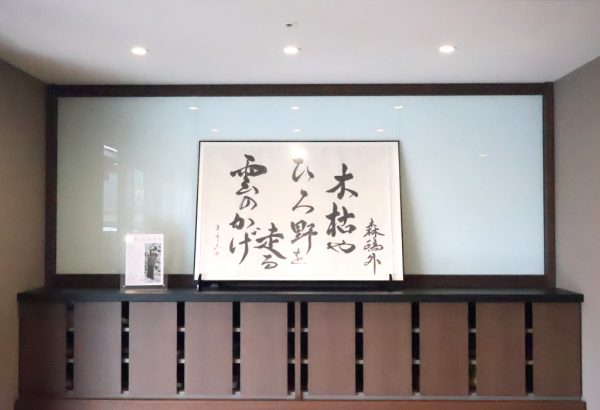 森鴎外
木枯や
ひろ野を
走る
雲のかげ